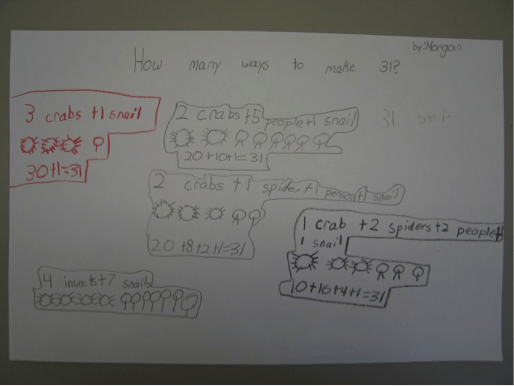 by: Morgan
How many ways to make 31?
3 crabs +1 snail
30+1=31
2 crabs+5 people+1 snail
20+10+1=31
31
2 crabs +1 spider+1 person+1 snail
20+8+2+1=31
1 crab +2 spiders+2 people+
1 snail
10+16+4+1=31
4 insects+7 snails